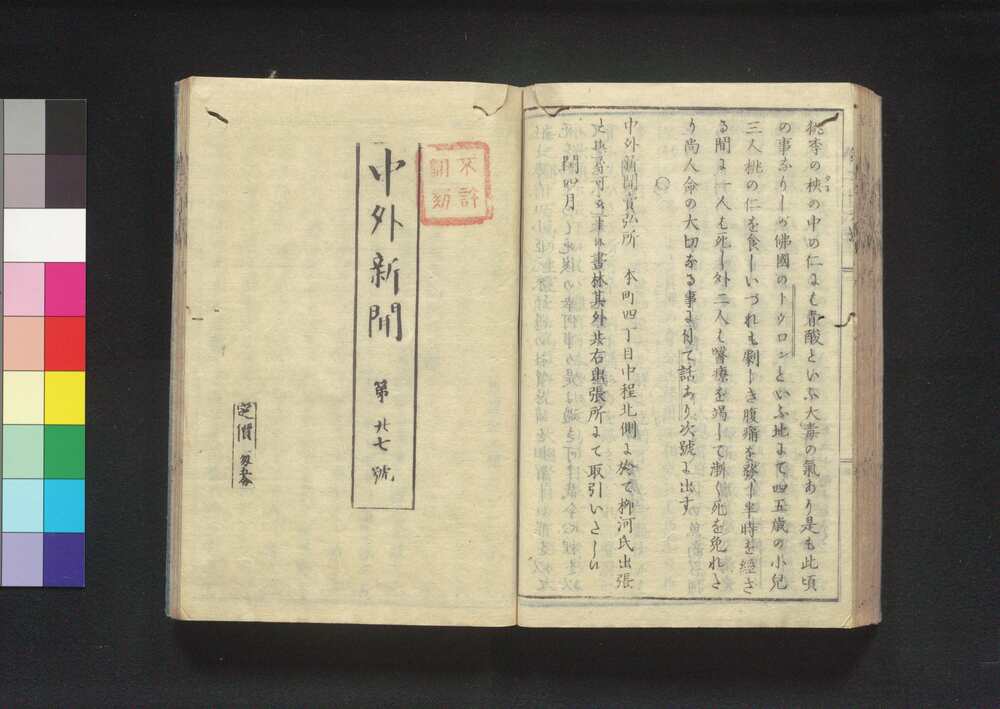 桃李の核の中の仁にも青酸といふ大毒の氣あり是も此頃
の事なりしが佛國のトウロンといふ地にて四五歳の小兒
三人桃の仁を食しいづれも劇しき腹痛を發し半時を經ざ
る間に一人も死し外二人も醫療を竭して漸く死を免れた
り尚人命の大切なる事に付て話あり次號に出す
○
中外新聞賣弘所 本町四丁目中程北側に於て柳河氏出張
書林其外共右出張所にて取引いたし候
閏四月
不許
翻刻
中外新聞 第廿七號
定價